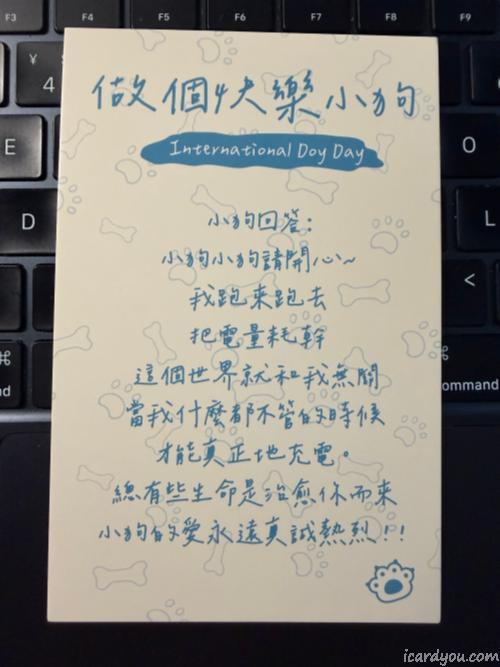 做個快樂小狗
International Doy Day
小狗回答:
小狗小狗請開心~
我跑來跑去
把電量耗幹
這個世界就和我無關
當我什麼都不管的時候
才能真正地充電。
總有些生命是治愈你而來
小狗的愛永遠真誠熱烈!!
F3
F4
F5
F6
F7
F8
F9
¥
4
E
D
O
L
<
⌘
command
icardyou.com